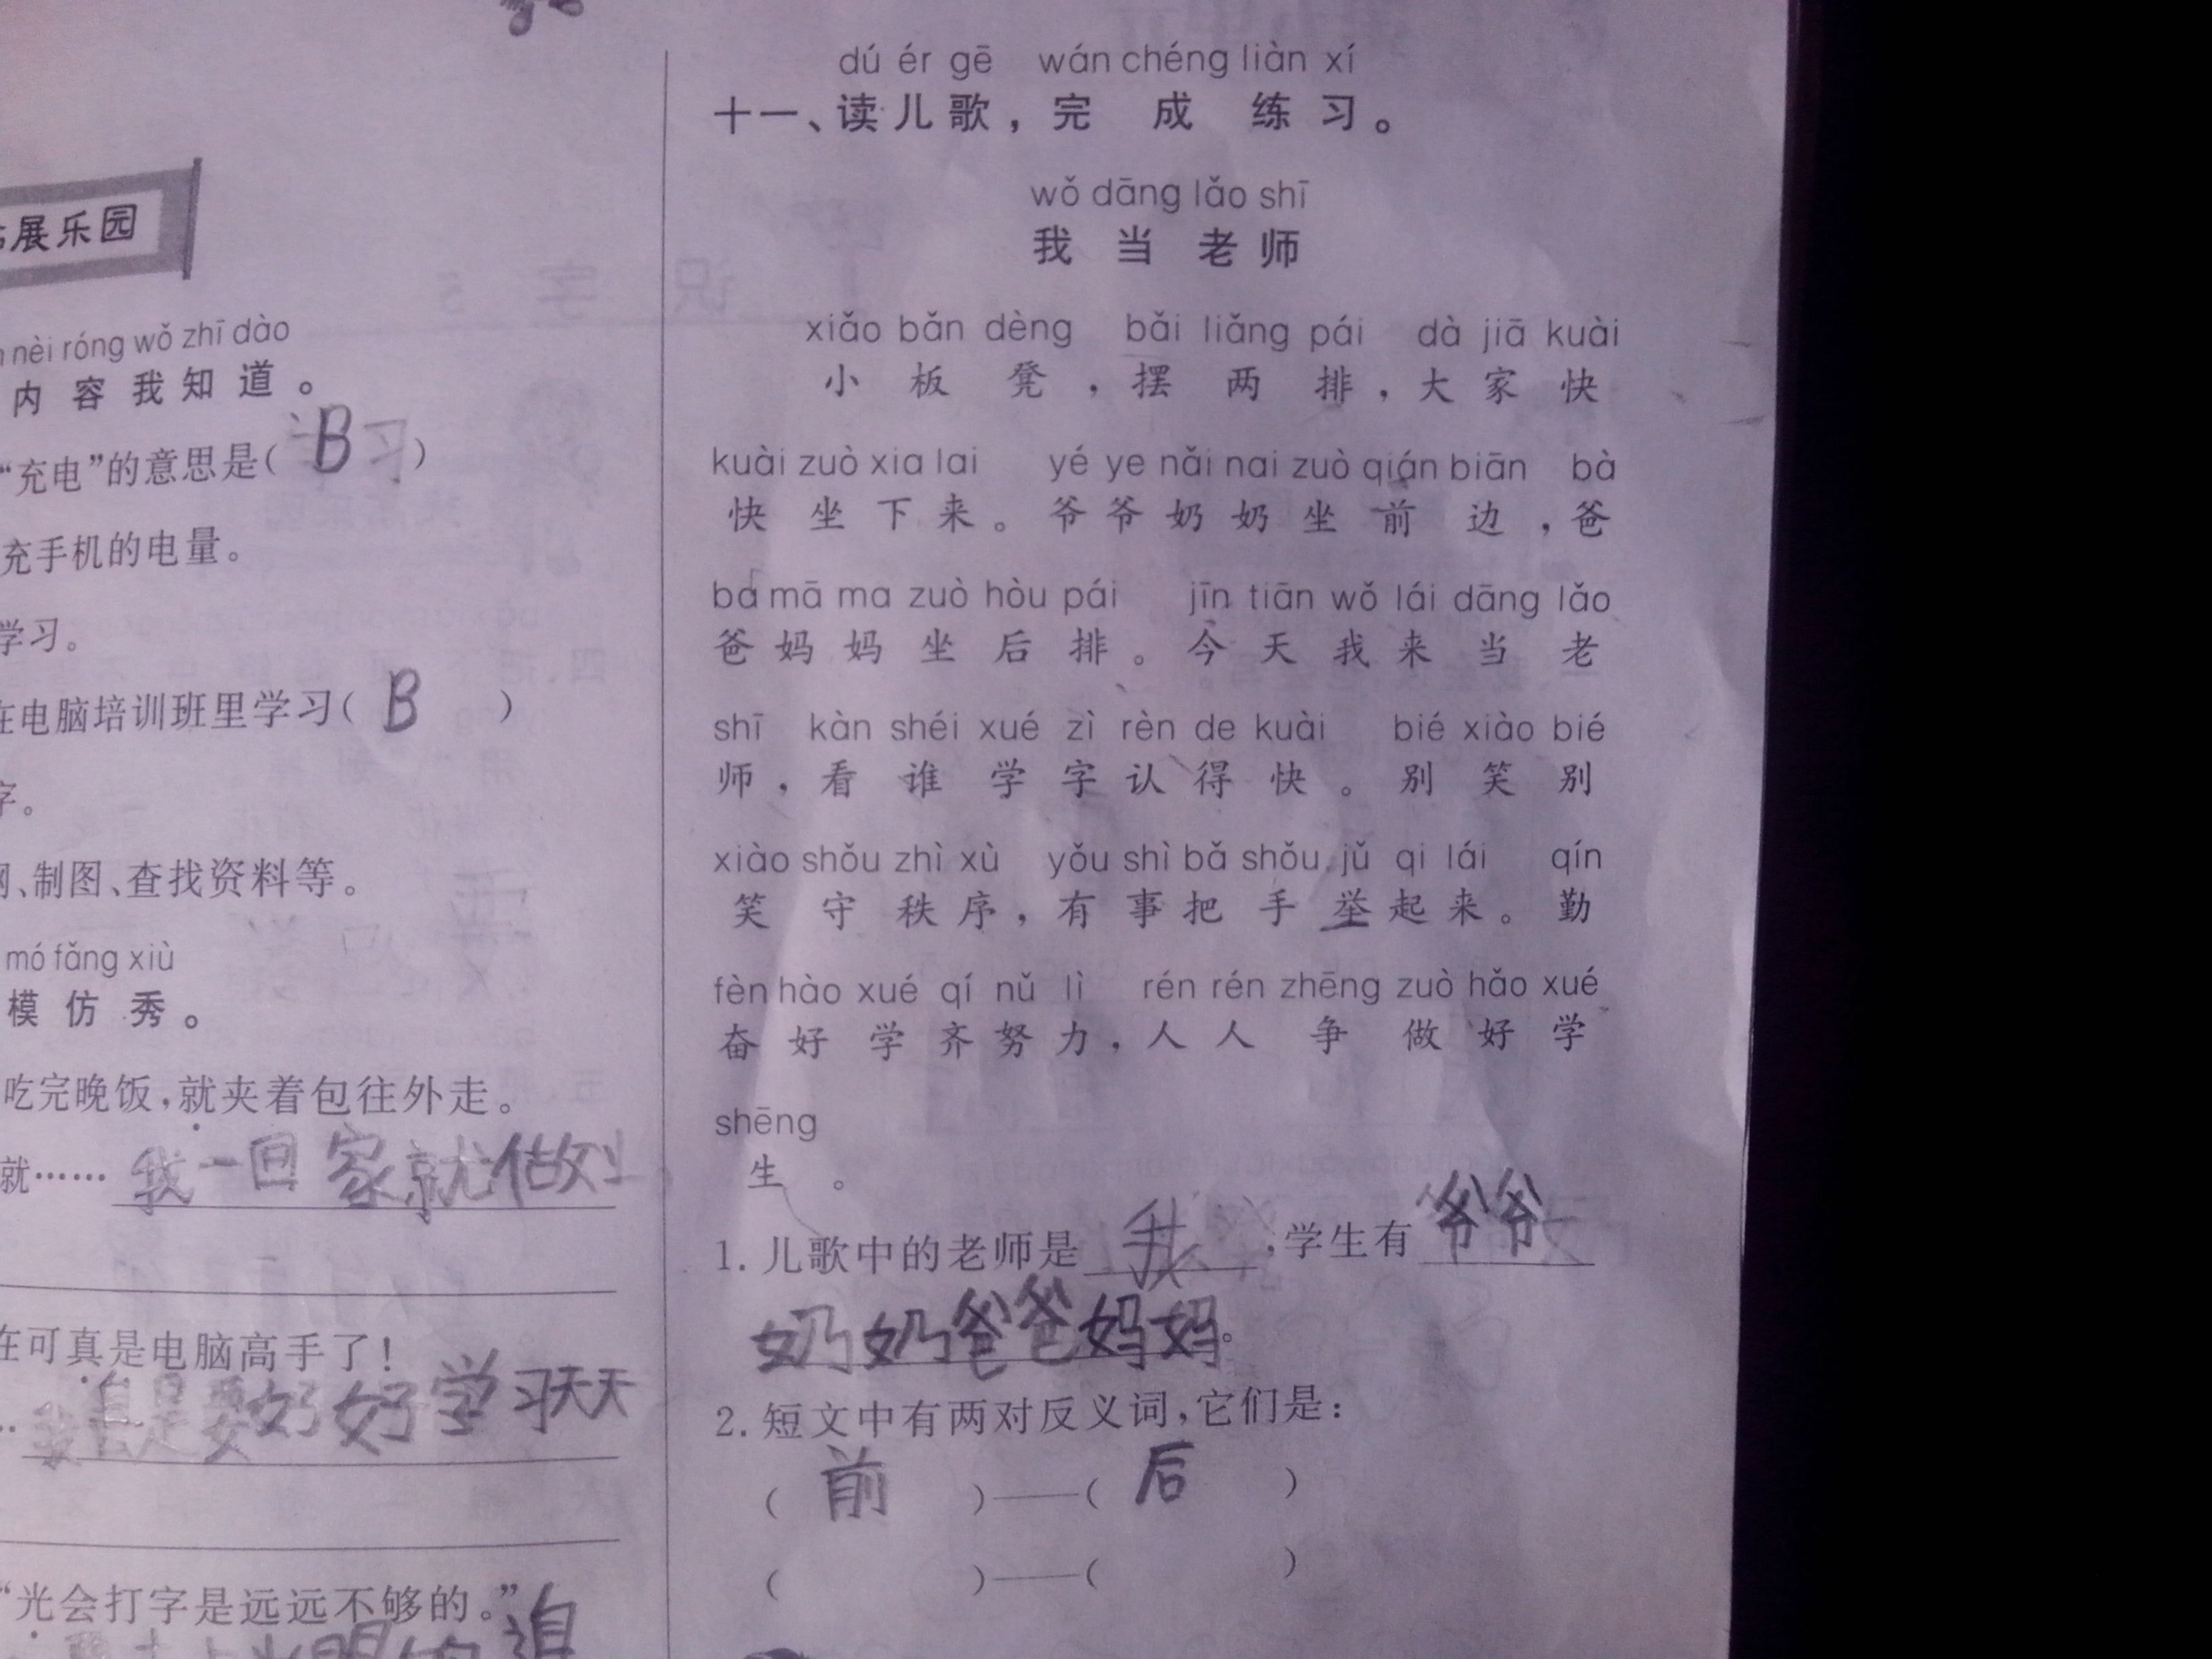 展乐园
nèi róng wǒ zhī dào
内容我知道。
“充电”的意思是( B )
充手机的电量。
学习。
在电脑培训班里学习( B )
字。
网、制图、查找资料等。
mó fǎng xiù
模仿秀。
吃完晚饭,就夹着包往外走。
就……我一回家就做
在可真是电脑高手了!
要好好学习天天
“光会打字是远远不够的。”
dú ér gē wán chéng liàn xí
十一、读儿歌,完成练习。
wǒ dāng lǎo shī
我当老师
xiǎo bǎn dèng bǎi liǎng pái dà jiā kuài
小板凳,摆两排,大家快
kuài zuò xia lai yé ye nǎi nai zuò qián biān bà
快坐下来。爷爷奶奶坐前边,爸
ba mā ma zuò hòu pái jīn tiān wǒ lái dāng lǎo
爸妈妈坐后排。今天我来当老
shī kàn shéi xué zì rèn de kuài bié xiào bié
师,看谁学字认得快。别笑别
xiào shǒu zhì xù yǒu shì bǎ shǒu jǔ qi lái qín
笑守秩序,有事把手举起来。勤
fèn hào xué qí nǔ lì rén rén zhēng zuò hǎo xué
奋好学齐努力,人人争做好学
shēng
生。
1. 儿歌中的老师是 我 ,学生有 爷爷
奶奶爸爸妈妈。
2. 短文中有两对反义词,它们是:
( 前 )——( 后 )
( )——( )